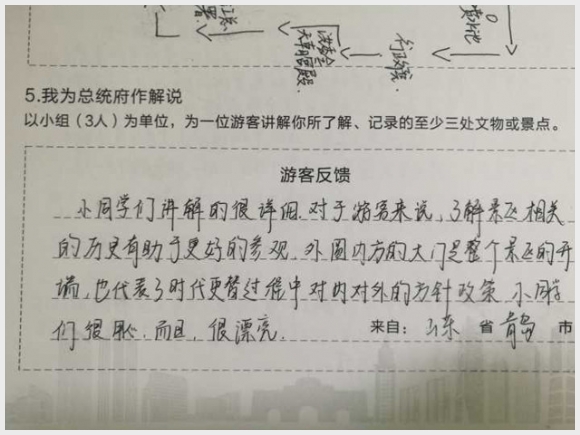 总
署
洪秀全
天朝宫殿
行政院
5.我为总统府作解说
以小组（3人）为单位，为一位游客讲解你所了解、记录的至少三处文物或景点。
游客反馈
小同学们讲解的很详细.对于游客来说,了解景区相关
的历史有助于更好的参观.外圆内方的大门是整个景区的开
端,也代表了时代更替过程中对内对外的方针政策.小同学
们很耐心.而且,很漂亮.
来自：山东 省 青岛 市